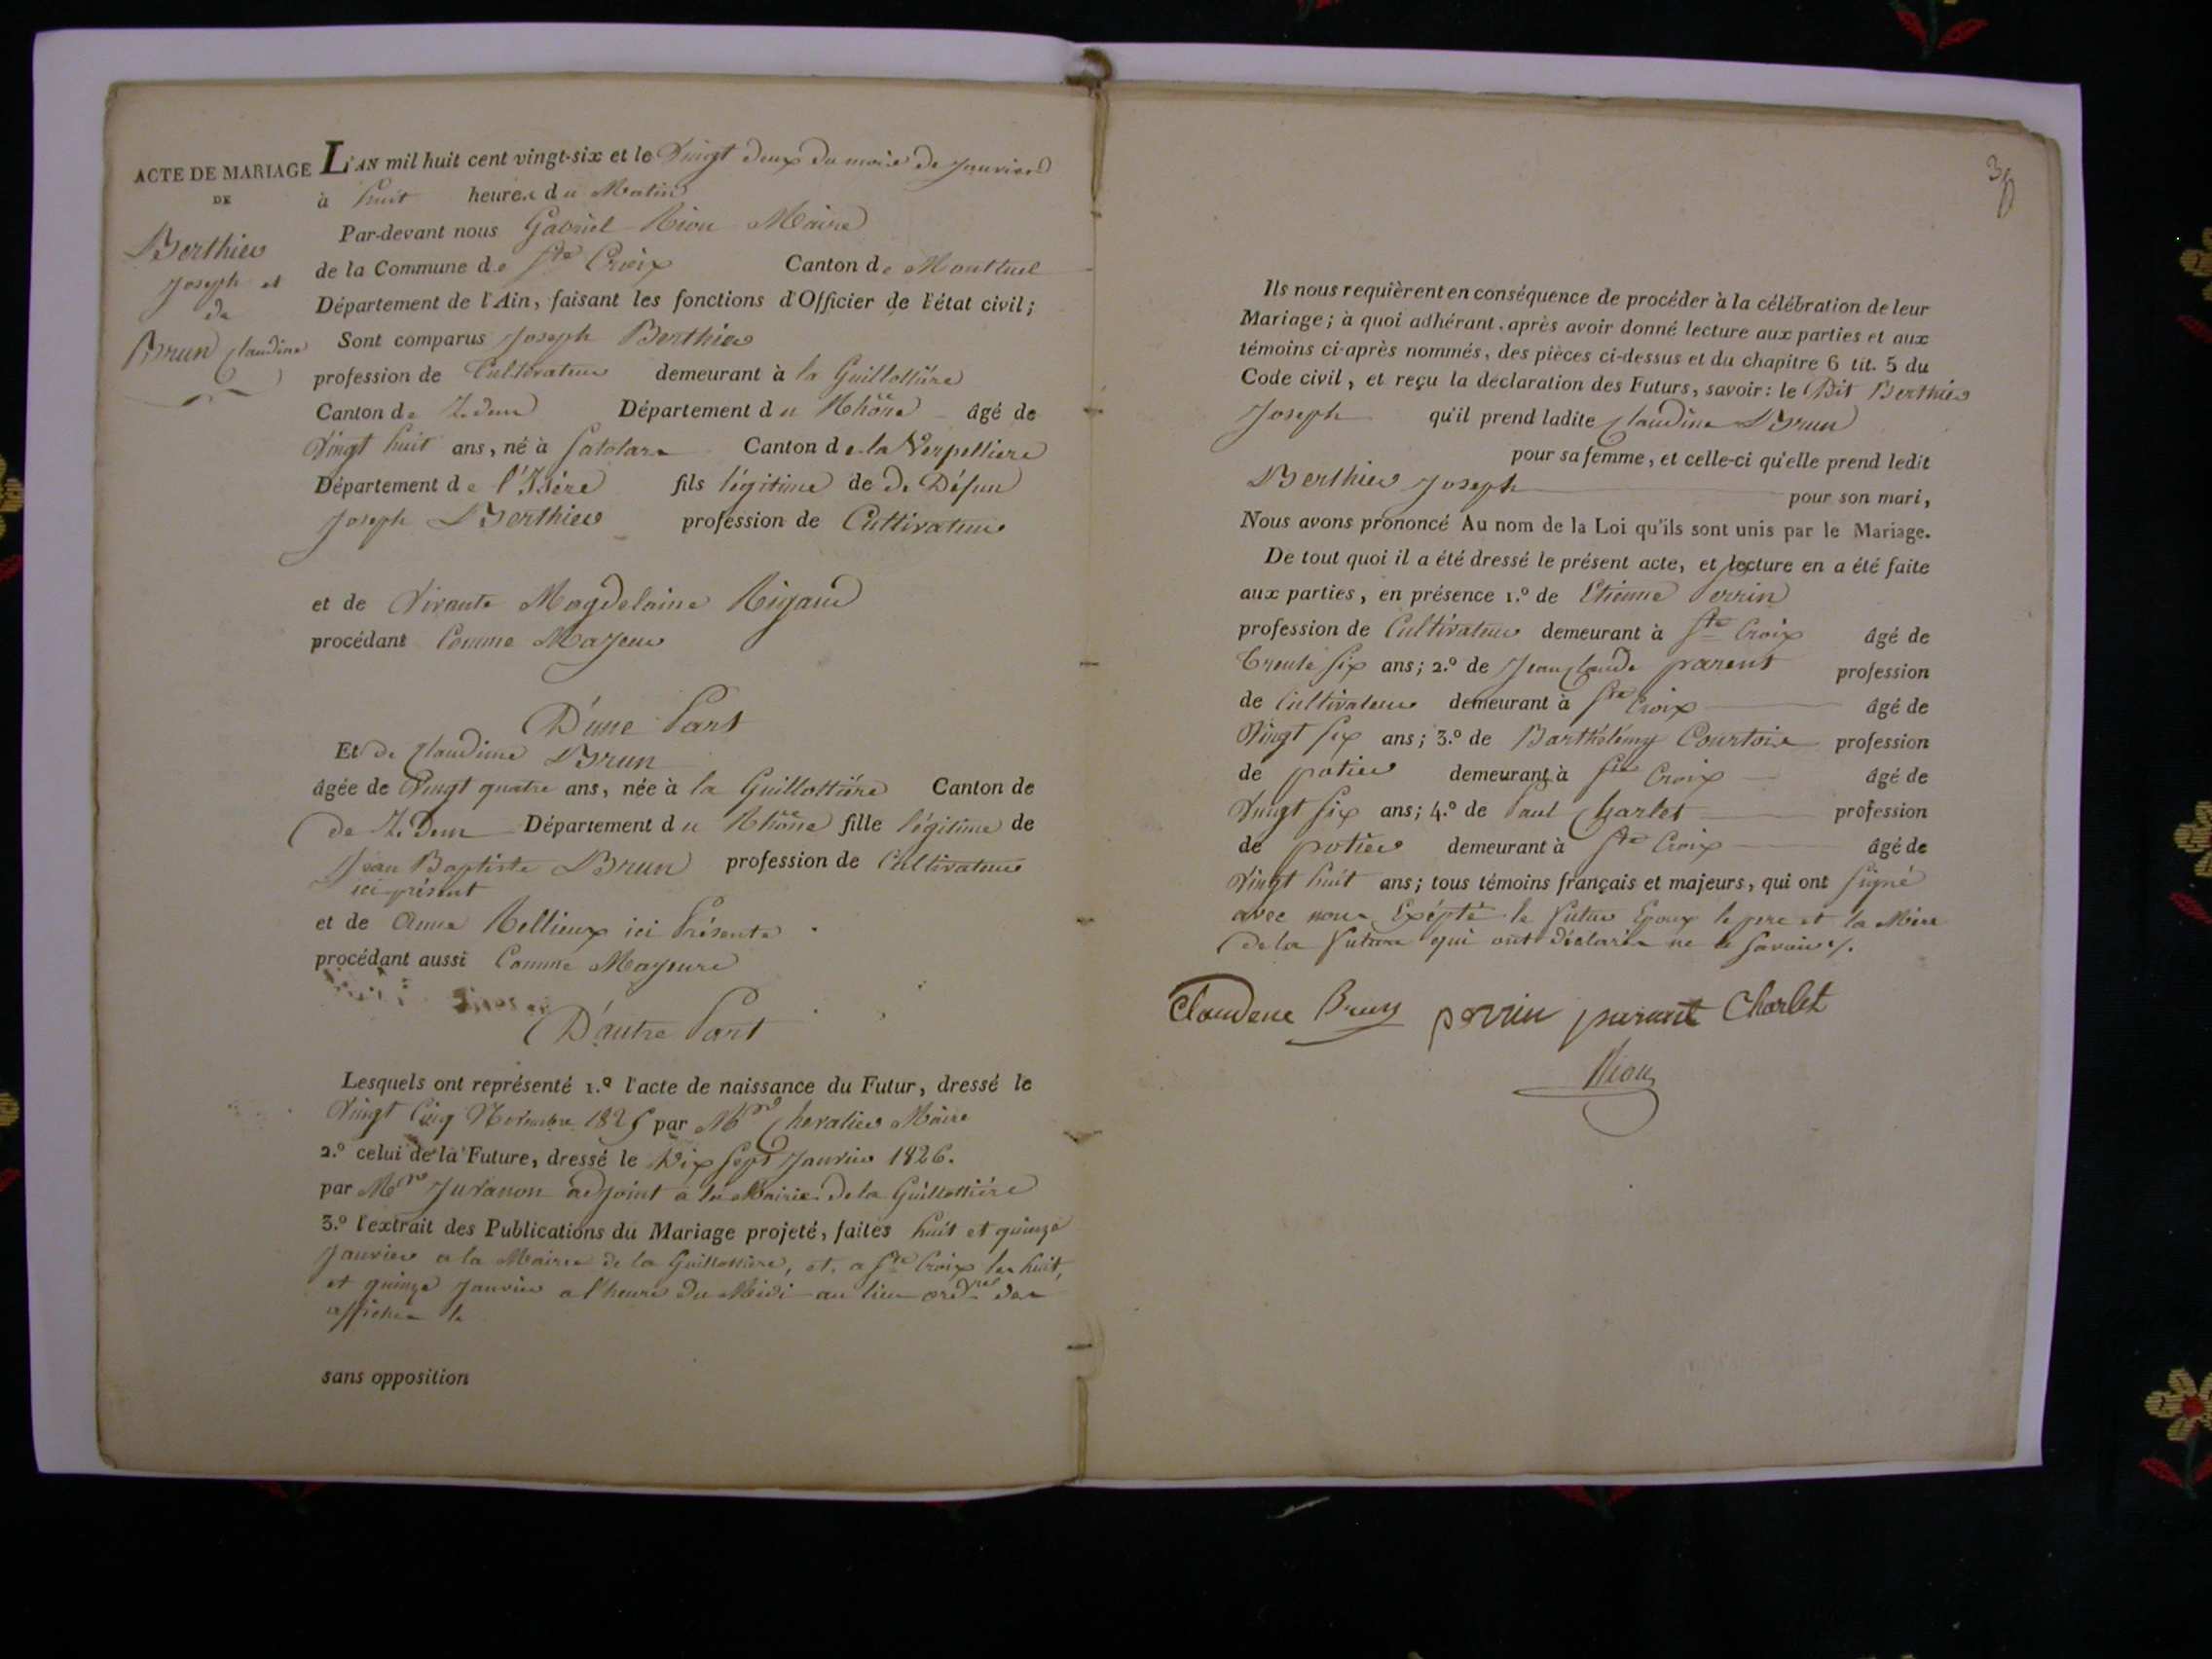 ACTE DE MARIAGE
DE
Berthier
Joseph et
de
Brun Claudine
L'AN mil huit cent vingt-six et le Vingt deux du mois de Janvier
à huit heures du Matin
Par-devant nous Gabriel Rion Maire
de la Commune de Ste Croix Canton de Montluel
Département de l'Ain, faisant les fonctions d'Officier de l'état civil;
Sont comparus Joseph Berthier
profession de Cultivateur demeurant à la Guillottière
Canton de Département du Rhône âgé de
Vingt huit ans, né à Satolas Canton de la Verpelliere
Département de l'Isère fils légitime de de Défun
Joseph Berthier profession de Cultivateur
et de Vivante Magdelaine Rigaud
procédant Comme Majeur
D'une Part
Et de Claudine Brun
âgée de Vingt quatre ans, née à la Guillottière Canton de
de Département du Rhône fille légitime de
Jean Baptiste Brun profession de Cultivateur
ici présent
et de Anne Rellieux ici Présente
procédant aussi Comme Majeure
D'autre Part
Lesquels ont représenté 1.º l'acte de naissance du Futur, dressé le
Vingt Cinq Novembre 1825 par Mr Chevalier Maire
2.º celui de la Future, dressé le Dix Sept Janvier 1826.
par Mr Juranon adjoint à la Mairie de la Guillottière
3.º l'extrait des Publications du Mariage projeté, faites huit et quinze
Janvier a la Mairie de la Guillottière, et a Ste Croix les huit,
et quinze Janvier a l'heure du Midi au lieu ordrel des
affiches le
sans opposition
39
Ils nous requièrent en conséquence de procéder à la célébration de leur
Mariage; à quoi adhérant, après avoir donné lecture aux parties et aux
témoins ci-après nommés, des pièces ci-dessus et du chapitre 6 tit. 5 du
Code civil, et reçu la déclaration des Futurs, savoir: le Dit Berthier
Joseph qu'il prend ladite Claudine Brun
pour sa femme, et celle-ci qu'elle prend ledit
Berthier Joseph pour son mari,
Nous avons prononcé Au nom de la Loi qu'ils sont unis par le Mariage.
De tout quoi il a été dressé le présent acte, et lecture en a été faite
aux parties, en présence 1.º de Etienne Perrin
profession de Cultivateur demeurant à Ste Croix âgé de
trente six ans; 2.º de Jean Claude parent profession
de Cultivateur demeurant à Ste Croix âgé de
Vingt six ans; 3.º de Barthélemy Courtois profession
de potier demeurant à Ste Croix âgé de
Vingt six ans; 4.º de Paul Charlet profession
de potier demeurant à Ste Croix âgé de
Vingt huit ans; tous témoins français et majeurs, qui ont signé
avec nous Exépté le Futur Epoux le pere et la Mère
de la Future qui ont déclarés ne le savoir /.
Claudene Brun perrin parant Charlet
Rion